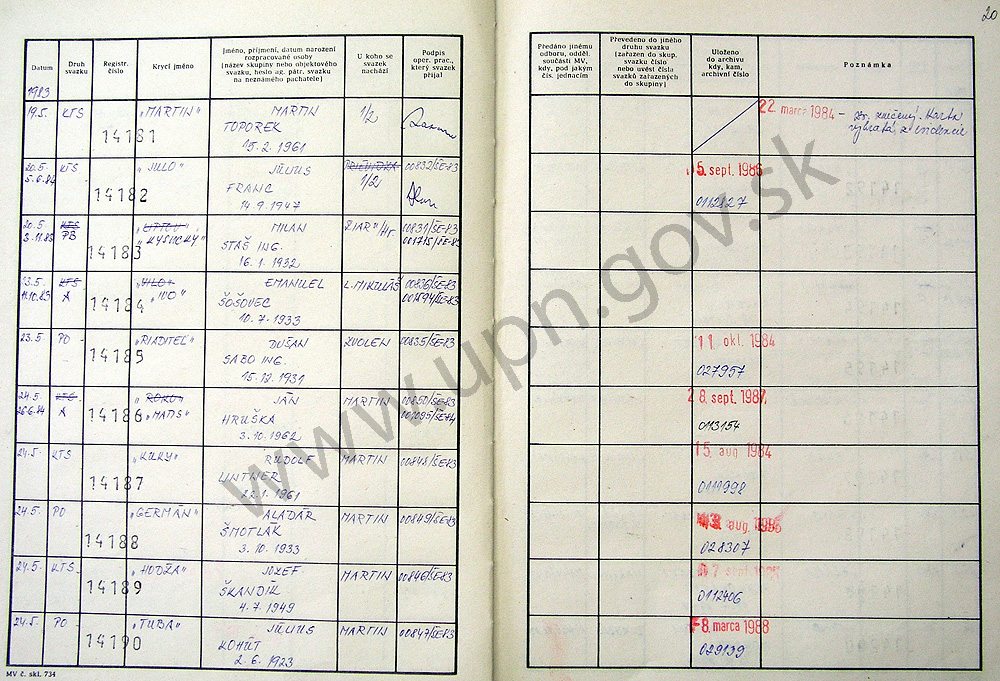 20
Datum
Druh svazku
Registr. číslo
Krycí jméno
Jméno, příjmení, datum narození rozpracované osoby (název skupiny nebo objektového svazku, heslo ag. pátr. svazku na neznámého pachatele)
U koho se svazek nachází
Podpis oper. prac., který svazek přijal
Předáno jinému odboru, odděl. součásti MV, kdy, pod jakým čís. jednacím
Převedeno do jiného druhu svazku (zařazen do skup. svazku číslo nebo uvést čísla svazků zařazených do skupiny)
Uloženo do archivu kdy, kam, archivní číslo
Poznámka
1983
19.5. KTS 14181 „MARTIN“ MARTIN 1/2
TOPOREK
15. 2. 1961
22. marca 1984 -
20.5. KTS 14182 „JULO“ JÚLIUS 00832/ŠE-83
5.6.84 FRANC 1/2
14. 9. 1947
5. sept. 1986
0112827
20.5. KTS 14183 MILAN ŽIAR n/Hr 00831/ŠE-83
PB „KYSUCKÝ“ STAŠ ING.
16. 1. 1932
KTS 14184 EMANUEL L. MIKULÁŠ 00836/ŠE-83
11.10.83 A „IVO“ ŠOŠOVEC
10. 7. 1933
23.5. PO 14185 „RIADITEĽ“ DUŠAN ZVOLEN 00835/ŠE-83
SABO ING.
11. okt. 1984
027957
24.5. KTS 14186 „ROKO“ JÁN MARTIN 00850/ŠE-83
26.6.84 A HRUŠKA
3. 10. 1962
28. sept. 1987
0113154
24.5. KTS 14187 RUDOLF MARTIN 00848/ŠE-83
LINTNER
22. 1. 1961
15. aug. 1984
0111998
24.5. PO 14188 „GERMÁN“ ALADÁR MARTIN 00849/ŠE-83
ŠMOTLÁK
3. 10. 1933
aug.
028307
24.5. KTS 14189 „HODŽA“ JOZEF MARTIN 00846/ŠE-83
ŠKANDÍK
4. 7. 1949
0112406
24.5. PO 14190 „TUBA“ JÚLIUS MARTIN 00847/ŠE-83
KOHÚT
2. 6. 1923
8. marca 1988
029139
MV č. skl. 734
www.upn.gov.sk